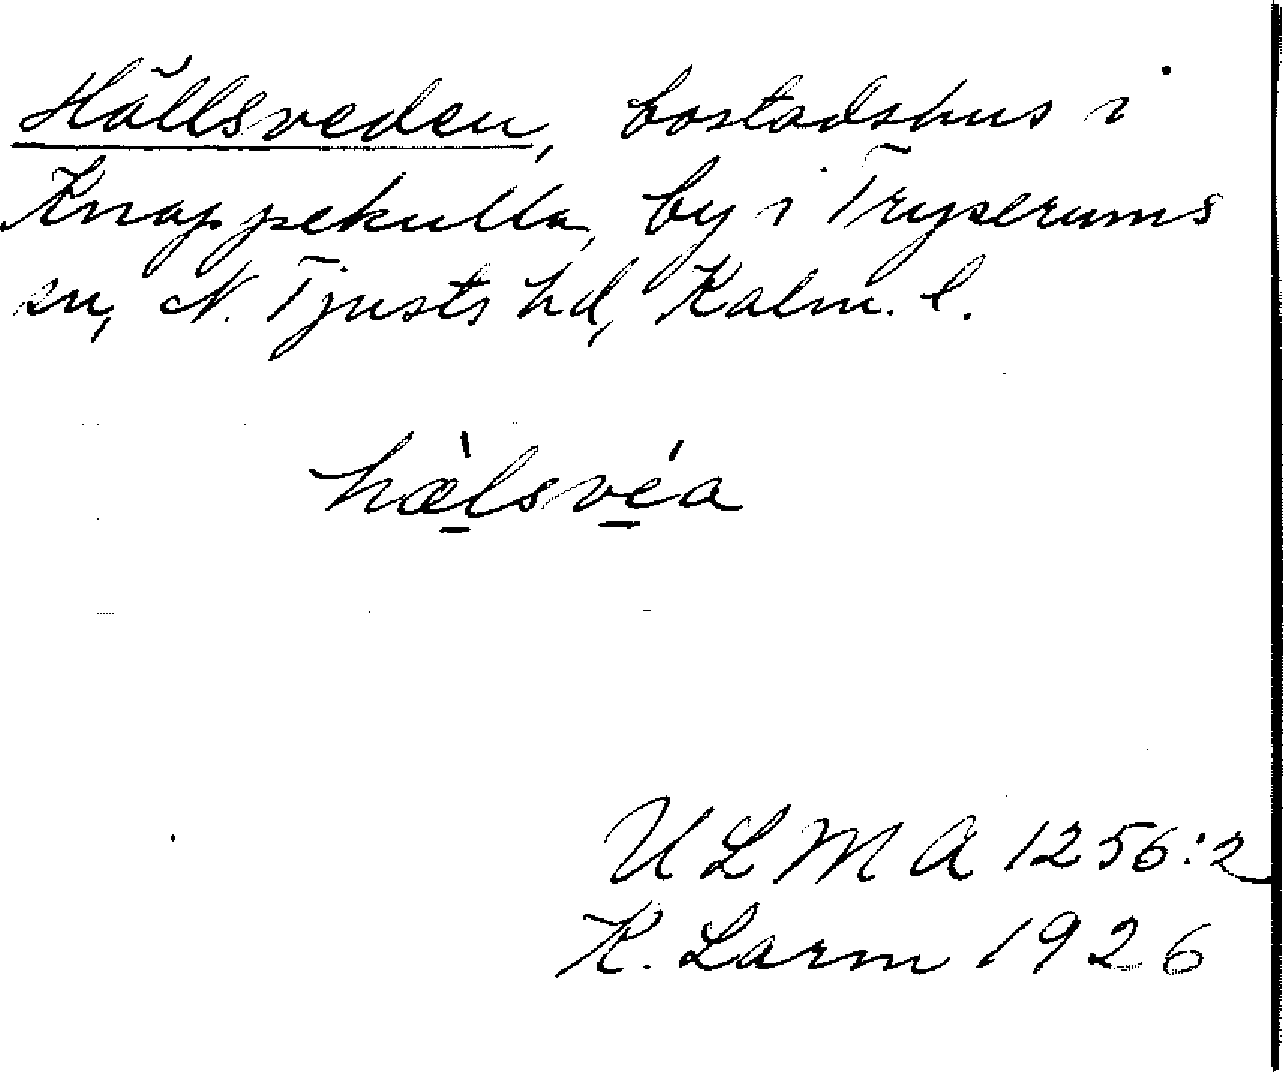 Hällsveden, bostadshus i
Knappekulla, by i Tryserums
sn, N. Tjusts hd, Kalm. l.
hæ̀lsvéa
ULMA 1256:2
K. Larm 1926